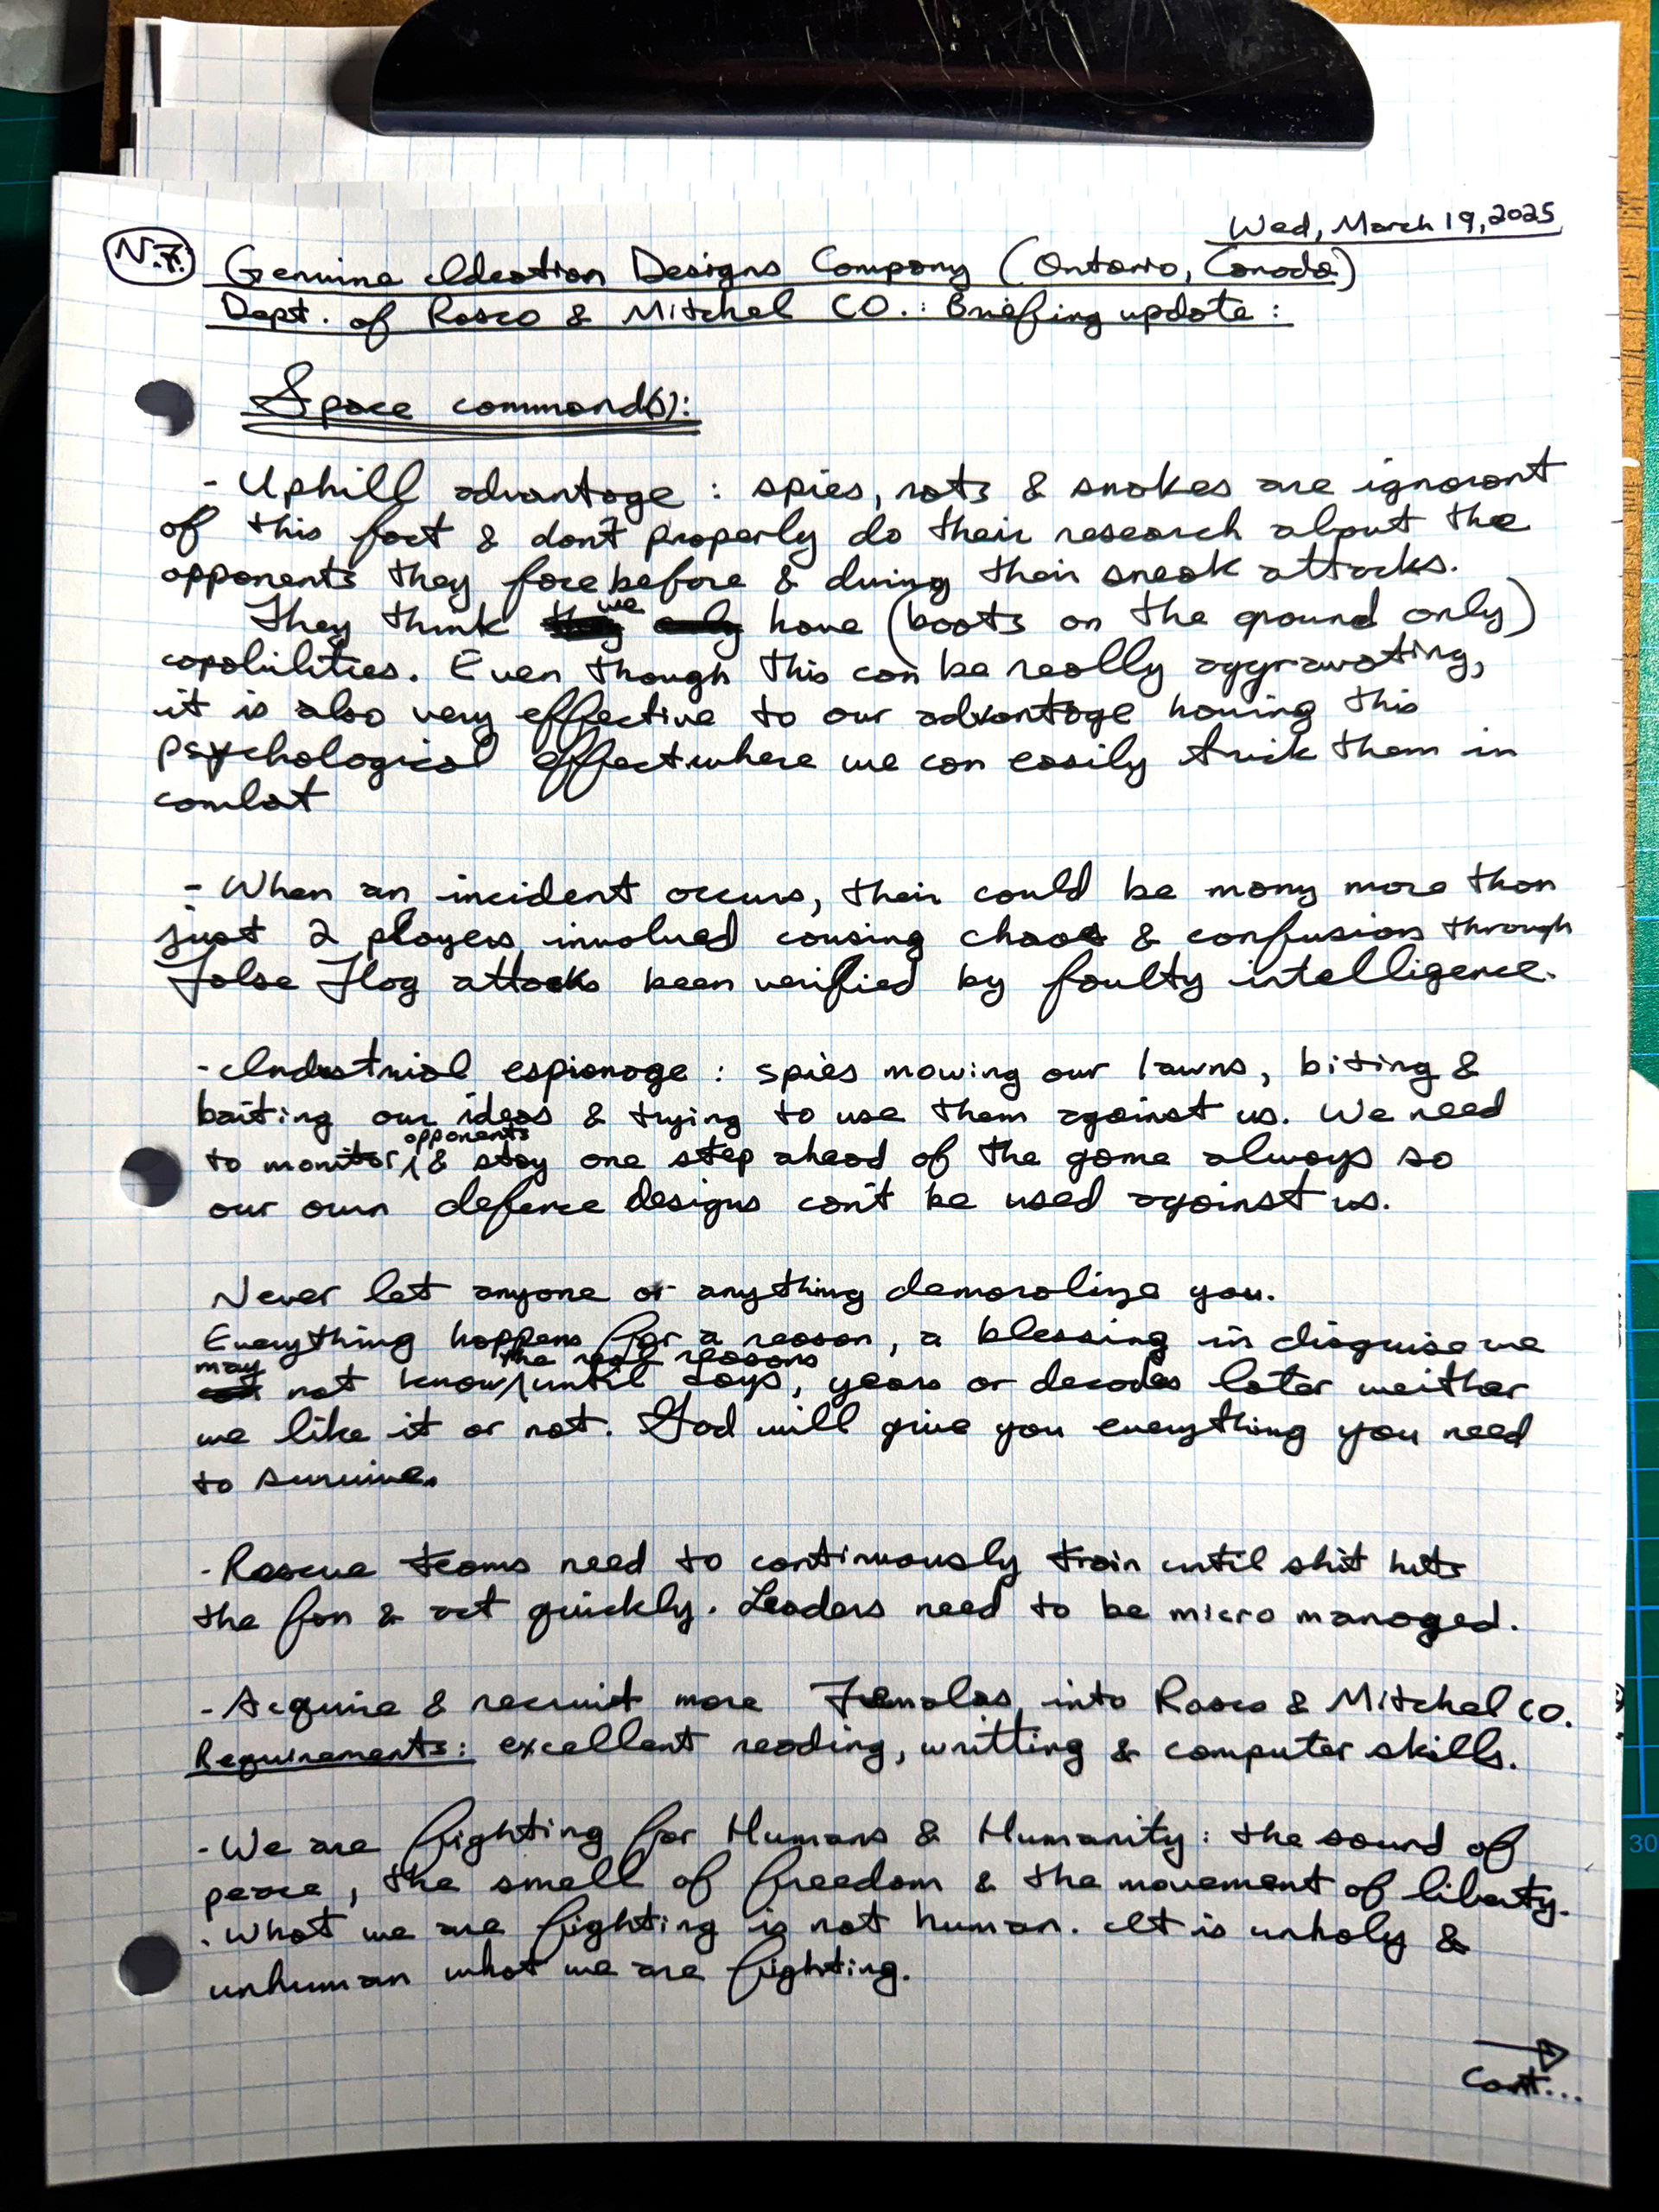 Wed, March 19, 2025
N.F. Genuine Ideation Designs Company (Ontario, Canada)
Dept. of Rosco & Mitchel CO.: Briefing update:
Space command(s):
- Uphill advantage: spies, rats & snakes are ignorant
of this fact & don't properly do their research about the
opponents they face before & during their sneak attacks.
They think we have (boots on the ground only)
capabilities. Even though this can be really aggravating,
it is also very effective to our advantage having this
psychological effect where we can easily trick them in
combat
- When an incident occurs, their could be many more than
just 2 players involved causing chaos & confusion through
False Flag attacks been verified by faulty intelligence.
- Industrial espionage: spies mowing our lawns, biting &
baiting our ideas & trying to use them against us. We need
to monitor opponents & stay one step ahead of the game always so
our own defence designs can't be used against us.
Never let anyone or anything demoralize you.
Everything happens for a reason, a blessing in disguise we
may not know the real reasons until days, years or decades later weither
we like it or not. God will give you everything you need
to survive.
- Rescue teams need to continuously train until shit hits
the fan & act quickly. Leaders need to be micro managed.
- Acquire & recruit more Females into Rosco & Mitchel CO.
Requirements: excellent reading, writting & computer skills.
- We are fighting for Humans & Humanity: the sound of
peace, the smell of freedom & the movement of liberty.
. What we are fighting is not human. It is unholy &
unhuman what we are fighting.
Cont...
30